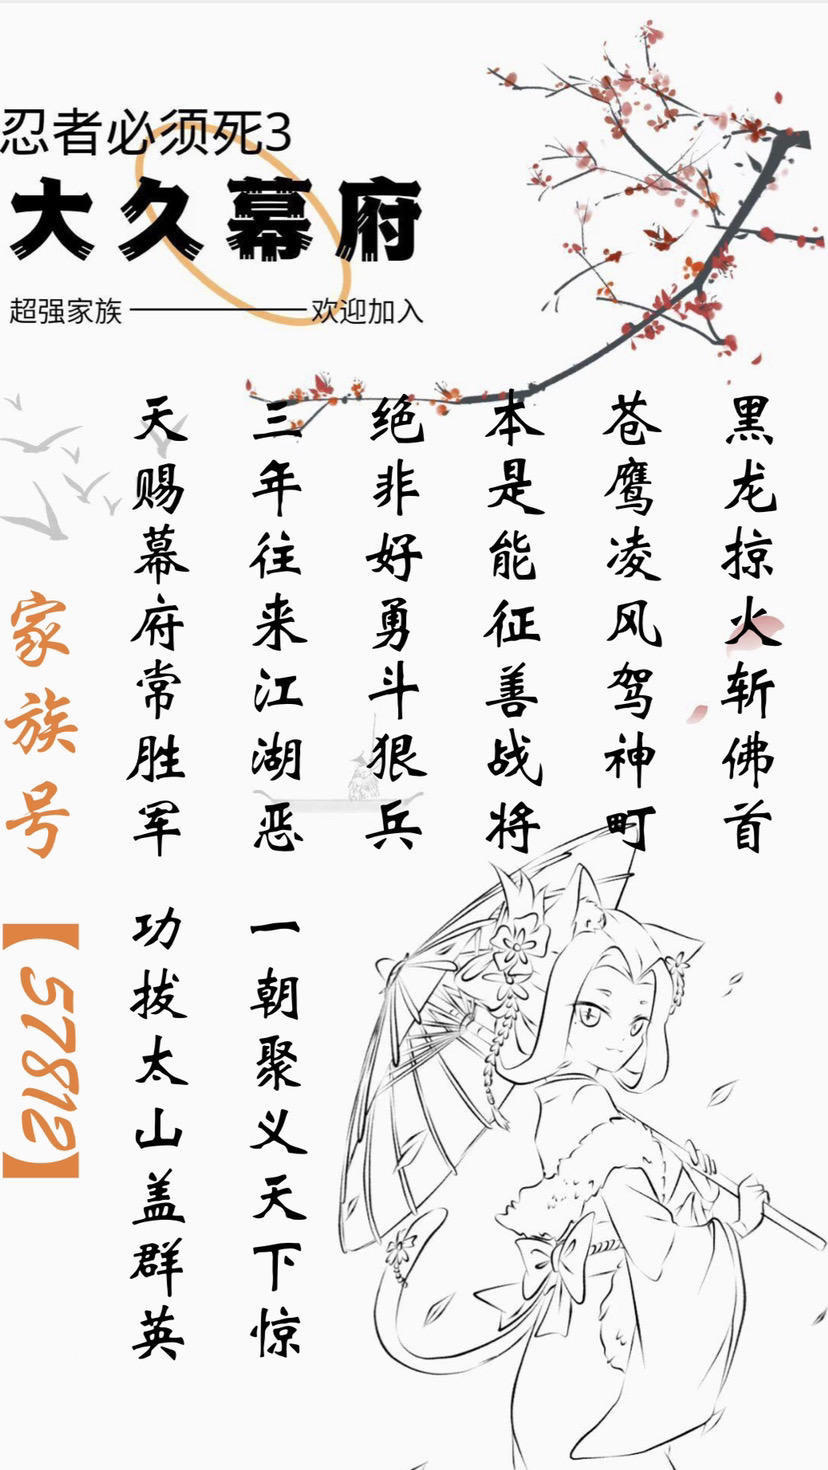 忍者必须死3
大久幕府
超强家族 欢迎加入
黑龙掠火斩佛首
苍鹰凌风驾神町
本是能征善战将
绝非好勇斗狠兵
三年往来江湖恶
一朝聚义天下惊
天赐幕府常胜军
功拔太山盖群英
家族号【57812】